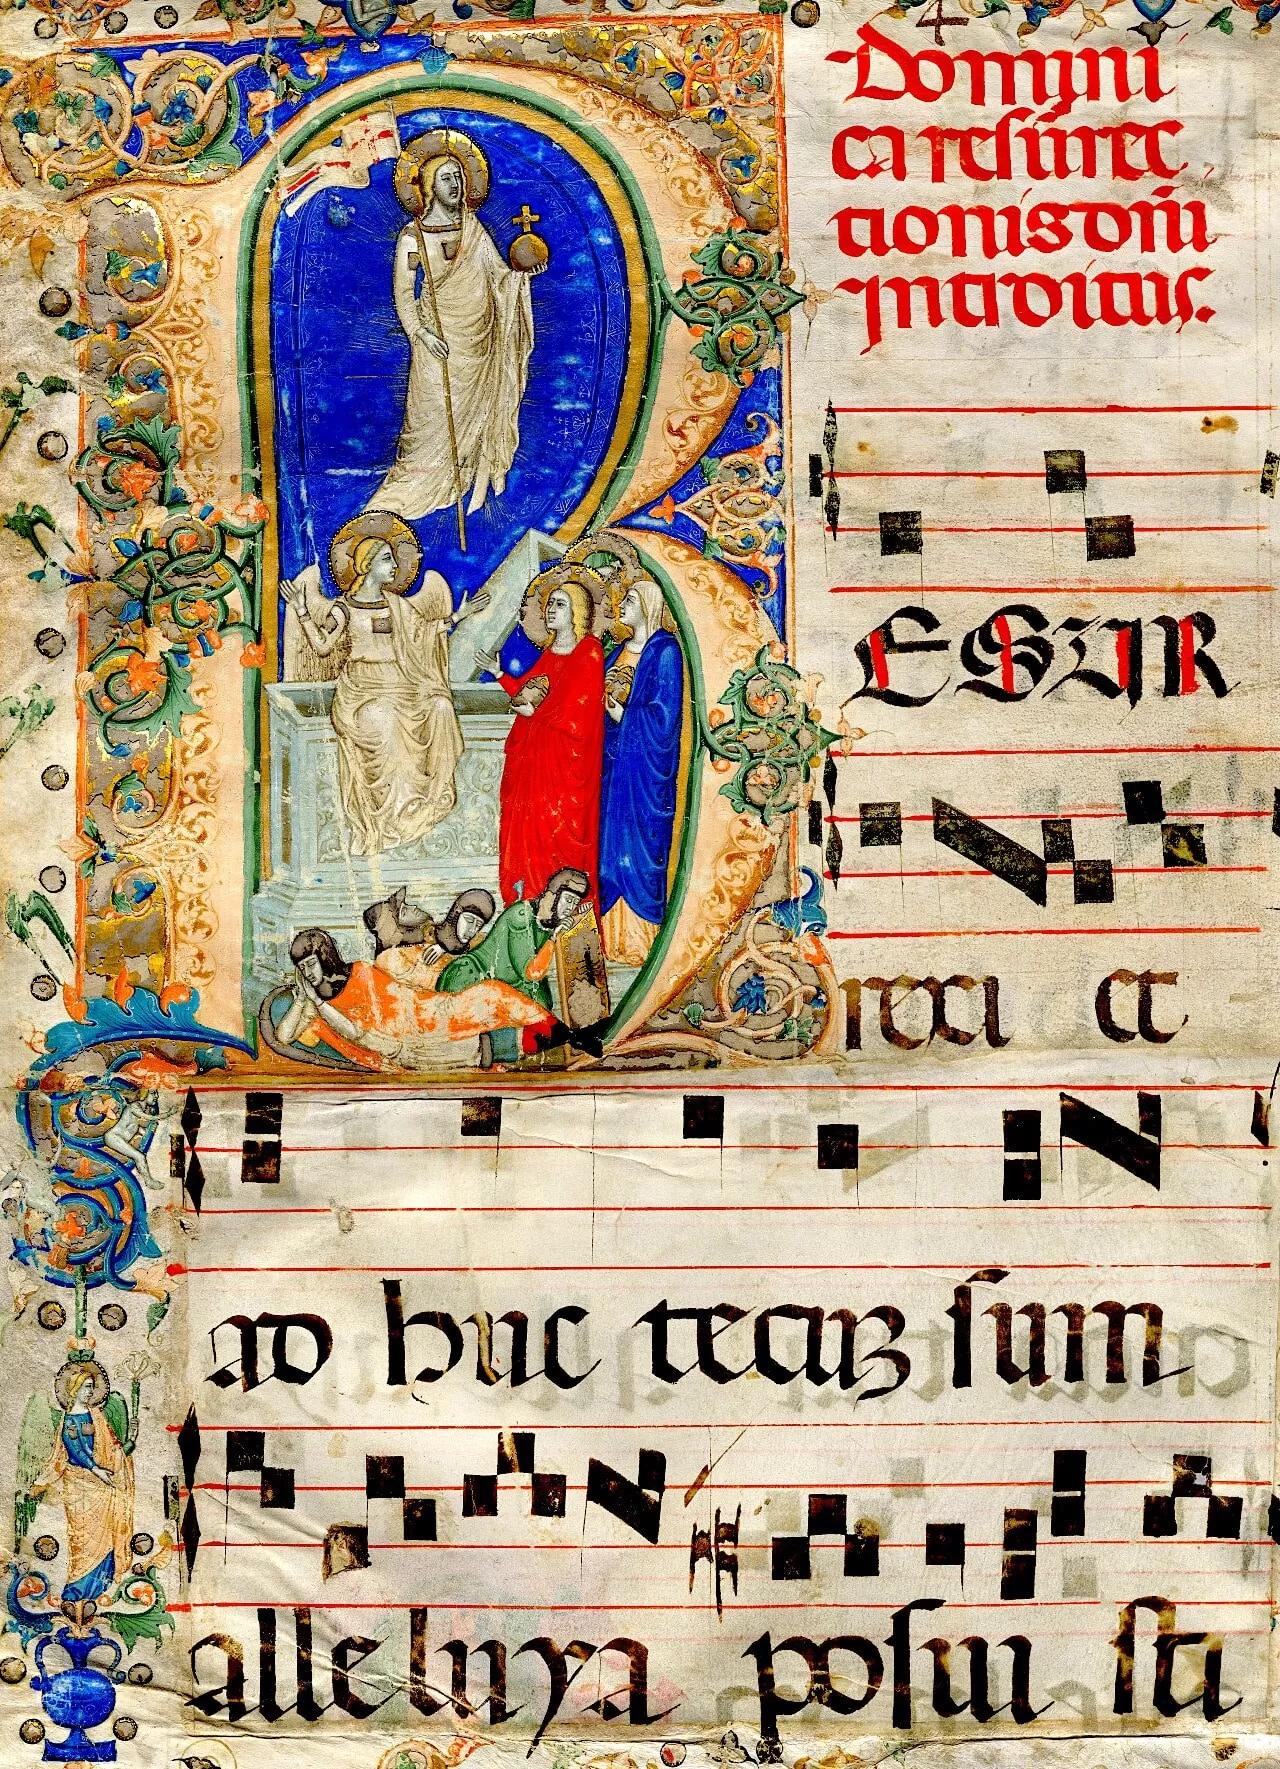 Domini
ca resurec
tionis dñi
Introitus.
RESUR
rexi et
ad huc tecuz sum
alleluya posui sti